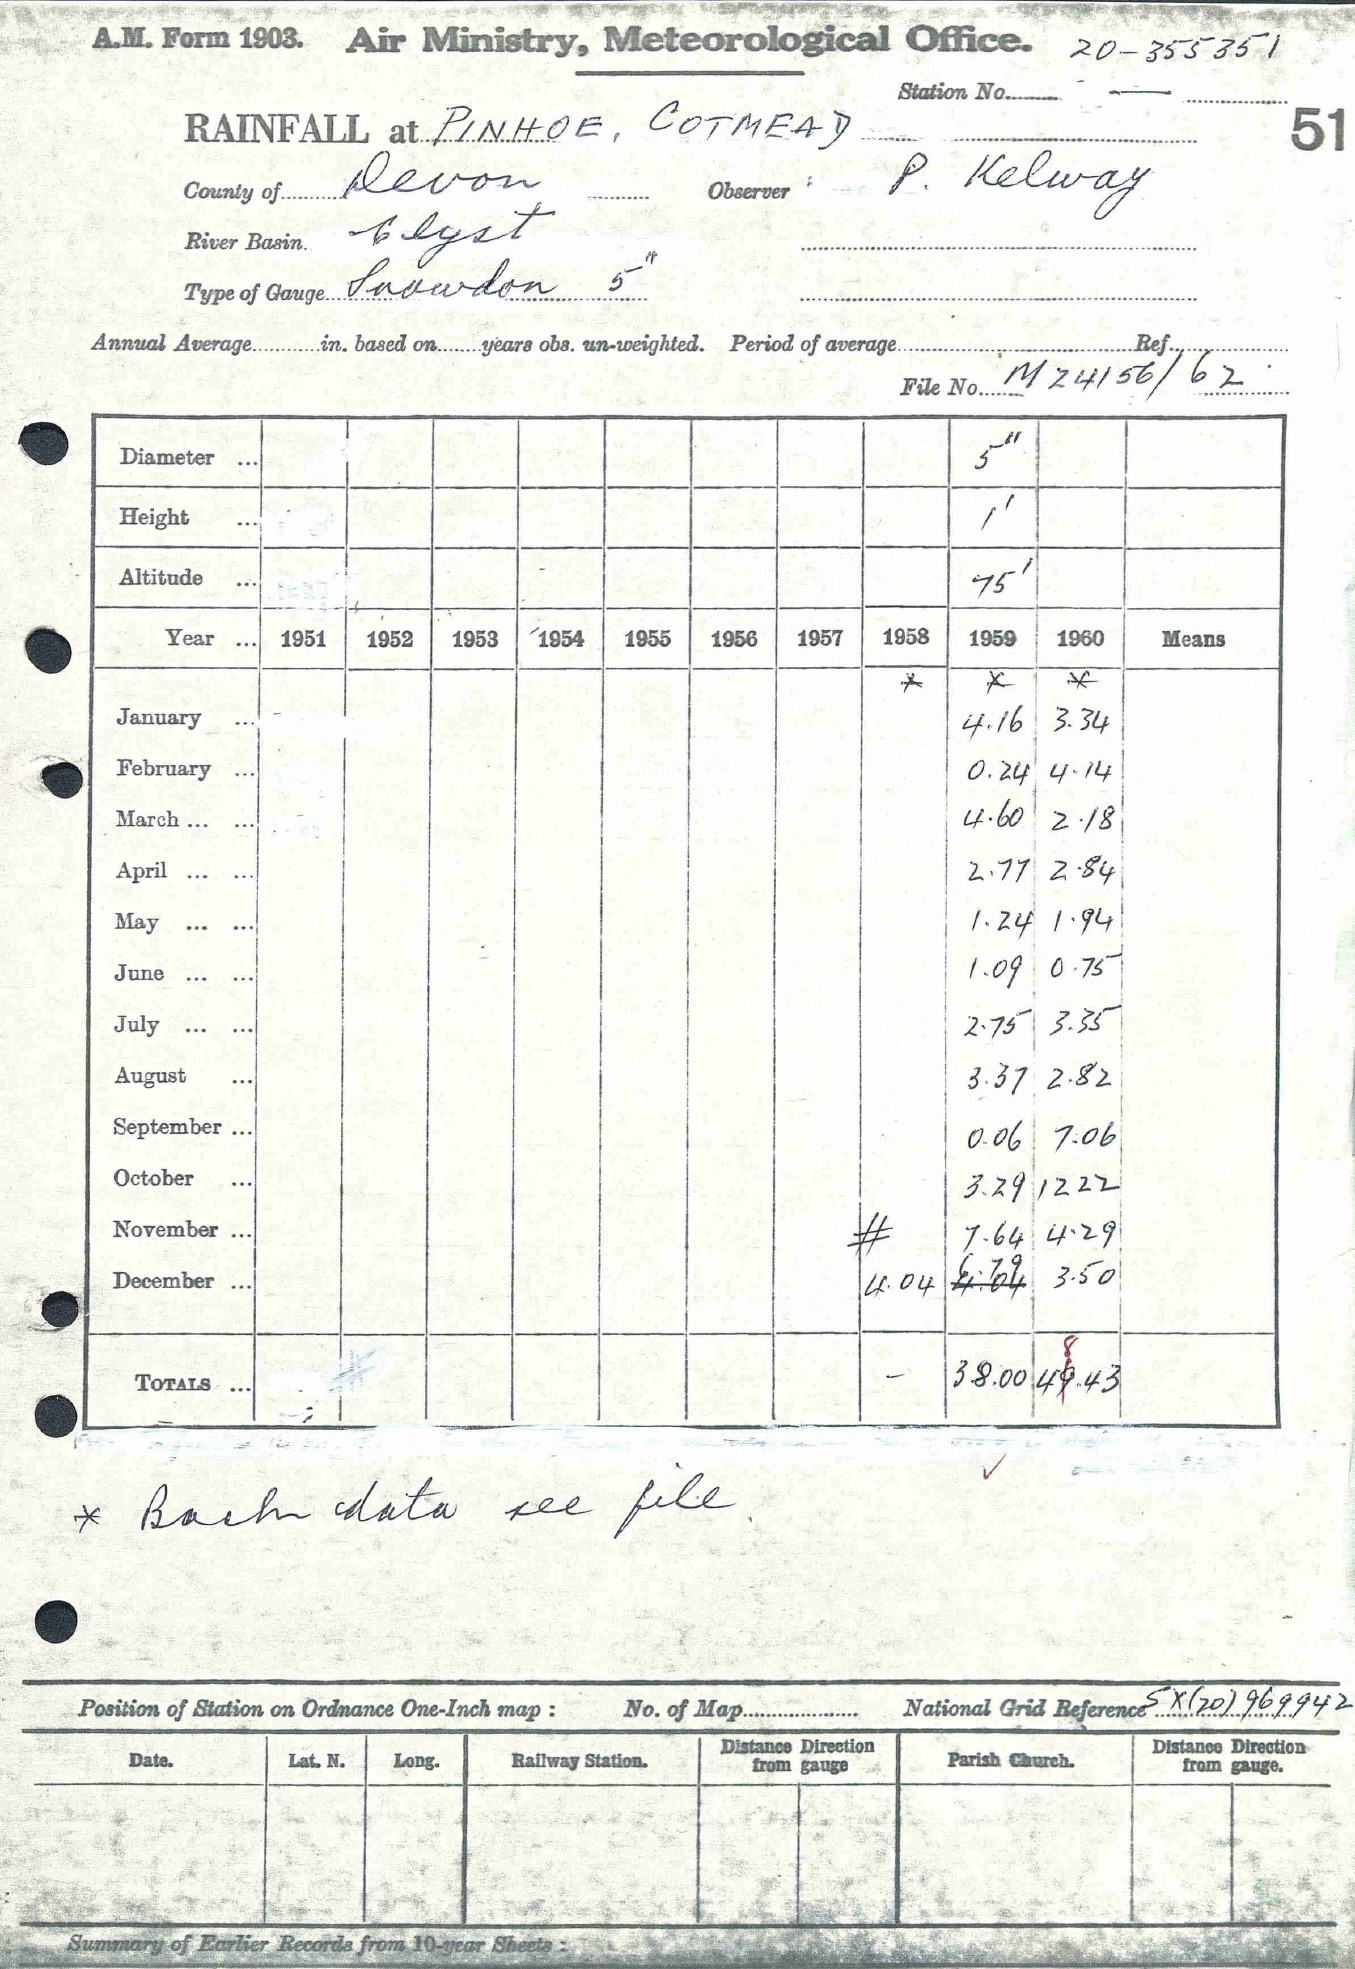 A.M. Form 1903. Air Ministry, Meteorological Office. 20-355351
Station No. —
51
RAINFALL at PINHOE, COTMEAD
County of Devon Observer P. Kelway
River Basin. Clyst
Type of Gauge Snowdon 5"
Annual Average in. based on years obs. un-weighted. Period of average Ref.
File No. MZ4156/62
Diameter ... 5"
Height ... 1'
Altitude ... 75'
Year ... 1951 1952 1953 1954 1955 1956 1957 1958 1959 1960 Means
* * *
January ... 4.16 3.34
February ... 0.24 4.14
March ... ... 4.60 2.18
April ... ... 2.77 2.84
May ... ... 1.24 1.94
June ... ... 1.09 0.75
July ... ... 2.75 3.35
August ... 3.37 2.82
September ... 0.06 7.06
October ... 3.29 12 22
November ... # 7.64 4.29
6.79
December ... 4.04 4.04 3.50
8
TOTALS ... - 38.00 49.43
✓
* Back data see file
Position of Station on Ordnance One-Inch map : No. of Map National Grid Reference SX(20)969942
Date. Lat. N. Long. Railway Station. Distance from gauge Direction Parish Church. Distance from gauge. Direction
Summary of Earlier Records from 10-year Sheets :